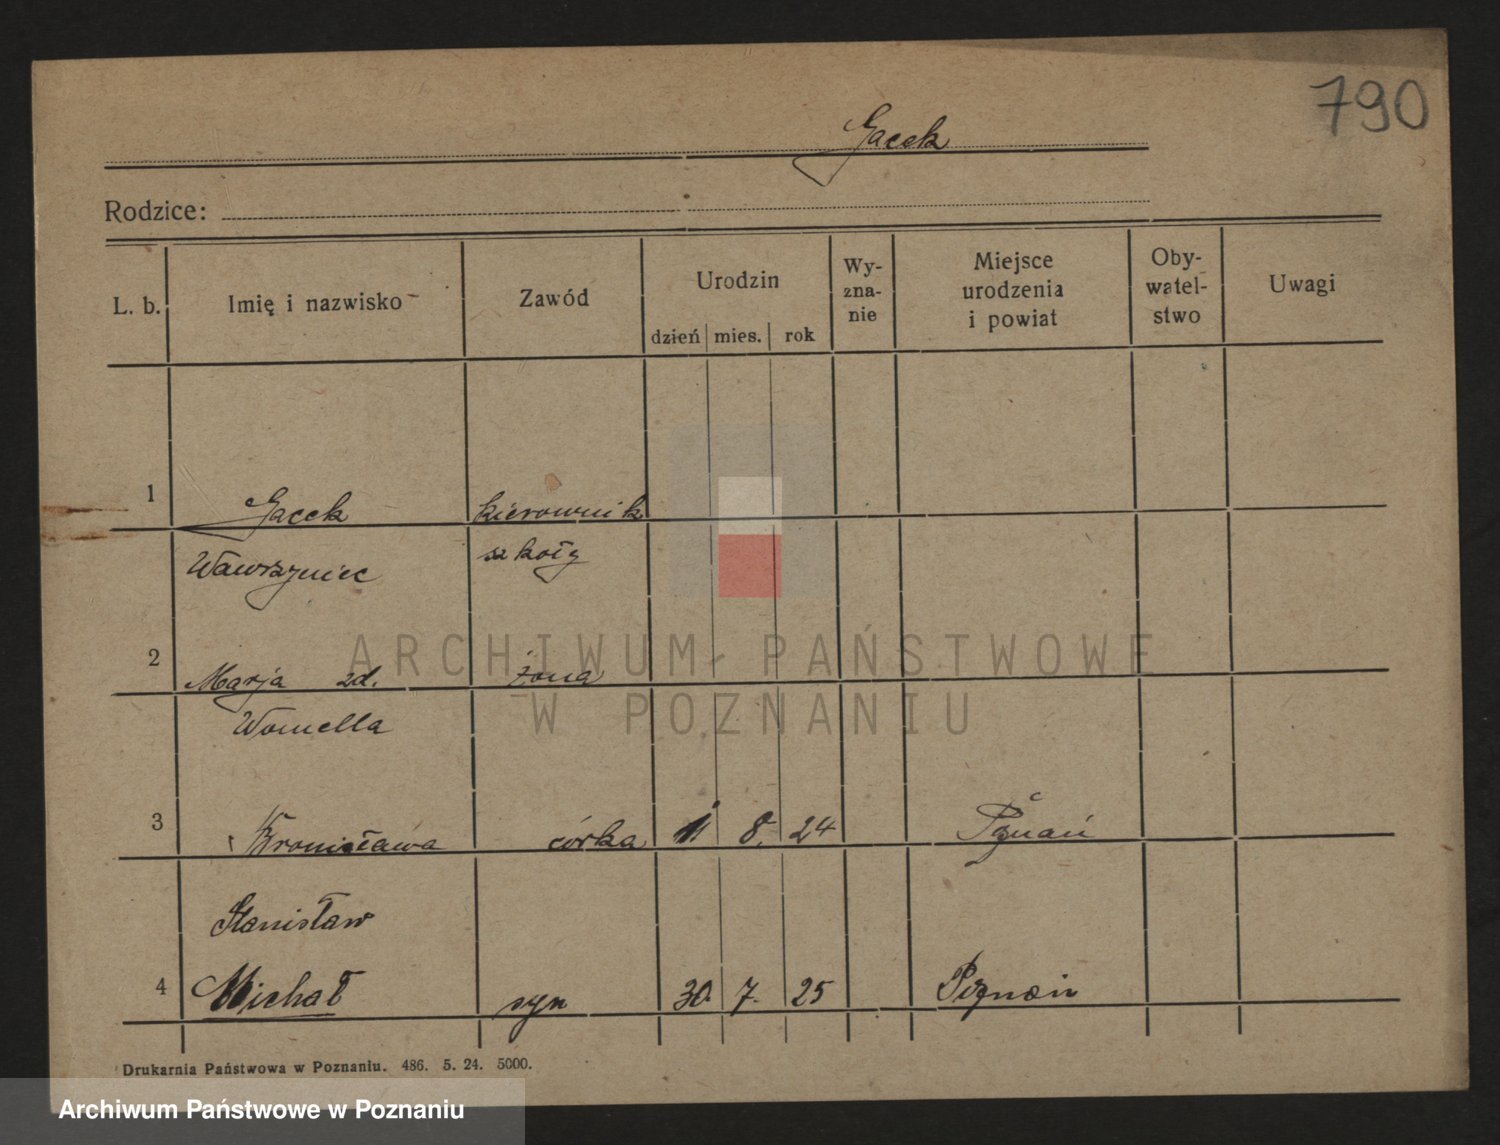 790
Gacek
Rodzice:
L. b. Imię i nazwisko Zawód Urodzin dzień mies. rok Wy-zna-nie Miejsce urodzenia i powiat Oby-watel-stwo Uwagi
1 Gacek kierownik
Wawrzyniec szkoły
2 Marja zd. żona
Womella
3 Bronisława córka 11 8. 24 Poznań
Stanisław
4 Michał syn 30. 7. 25 Poznań
Drukarnia Państwowa w Poznaniu. 486. 5. 24. 5000.
ARCHIWUM PAŃSTWOWE
W POZNANIU
Archiwum Państwowe w Poznaniu